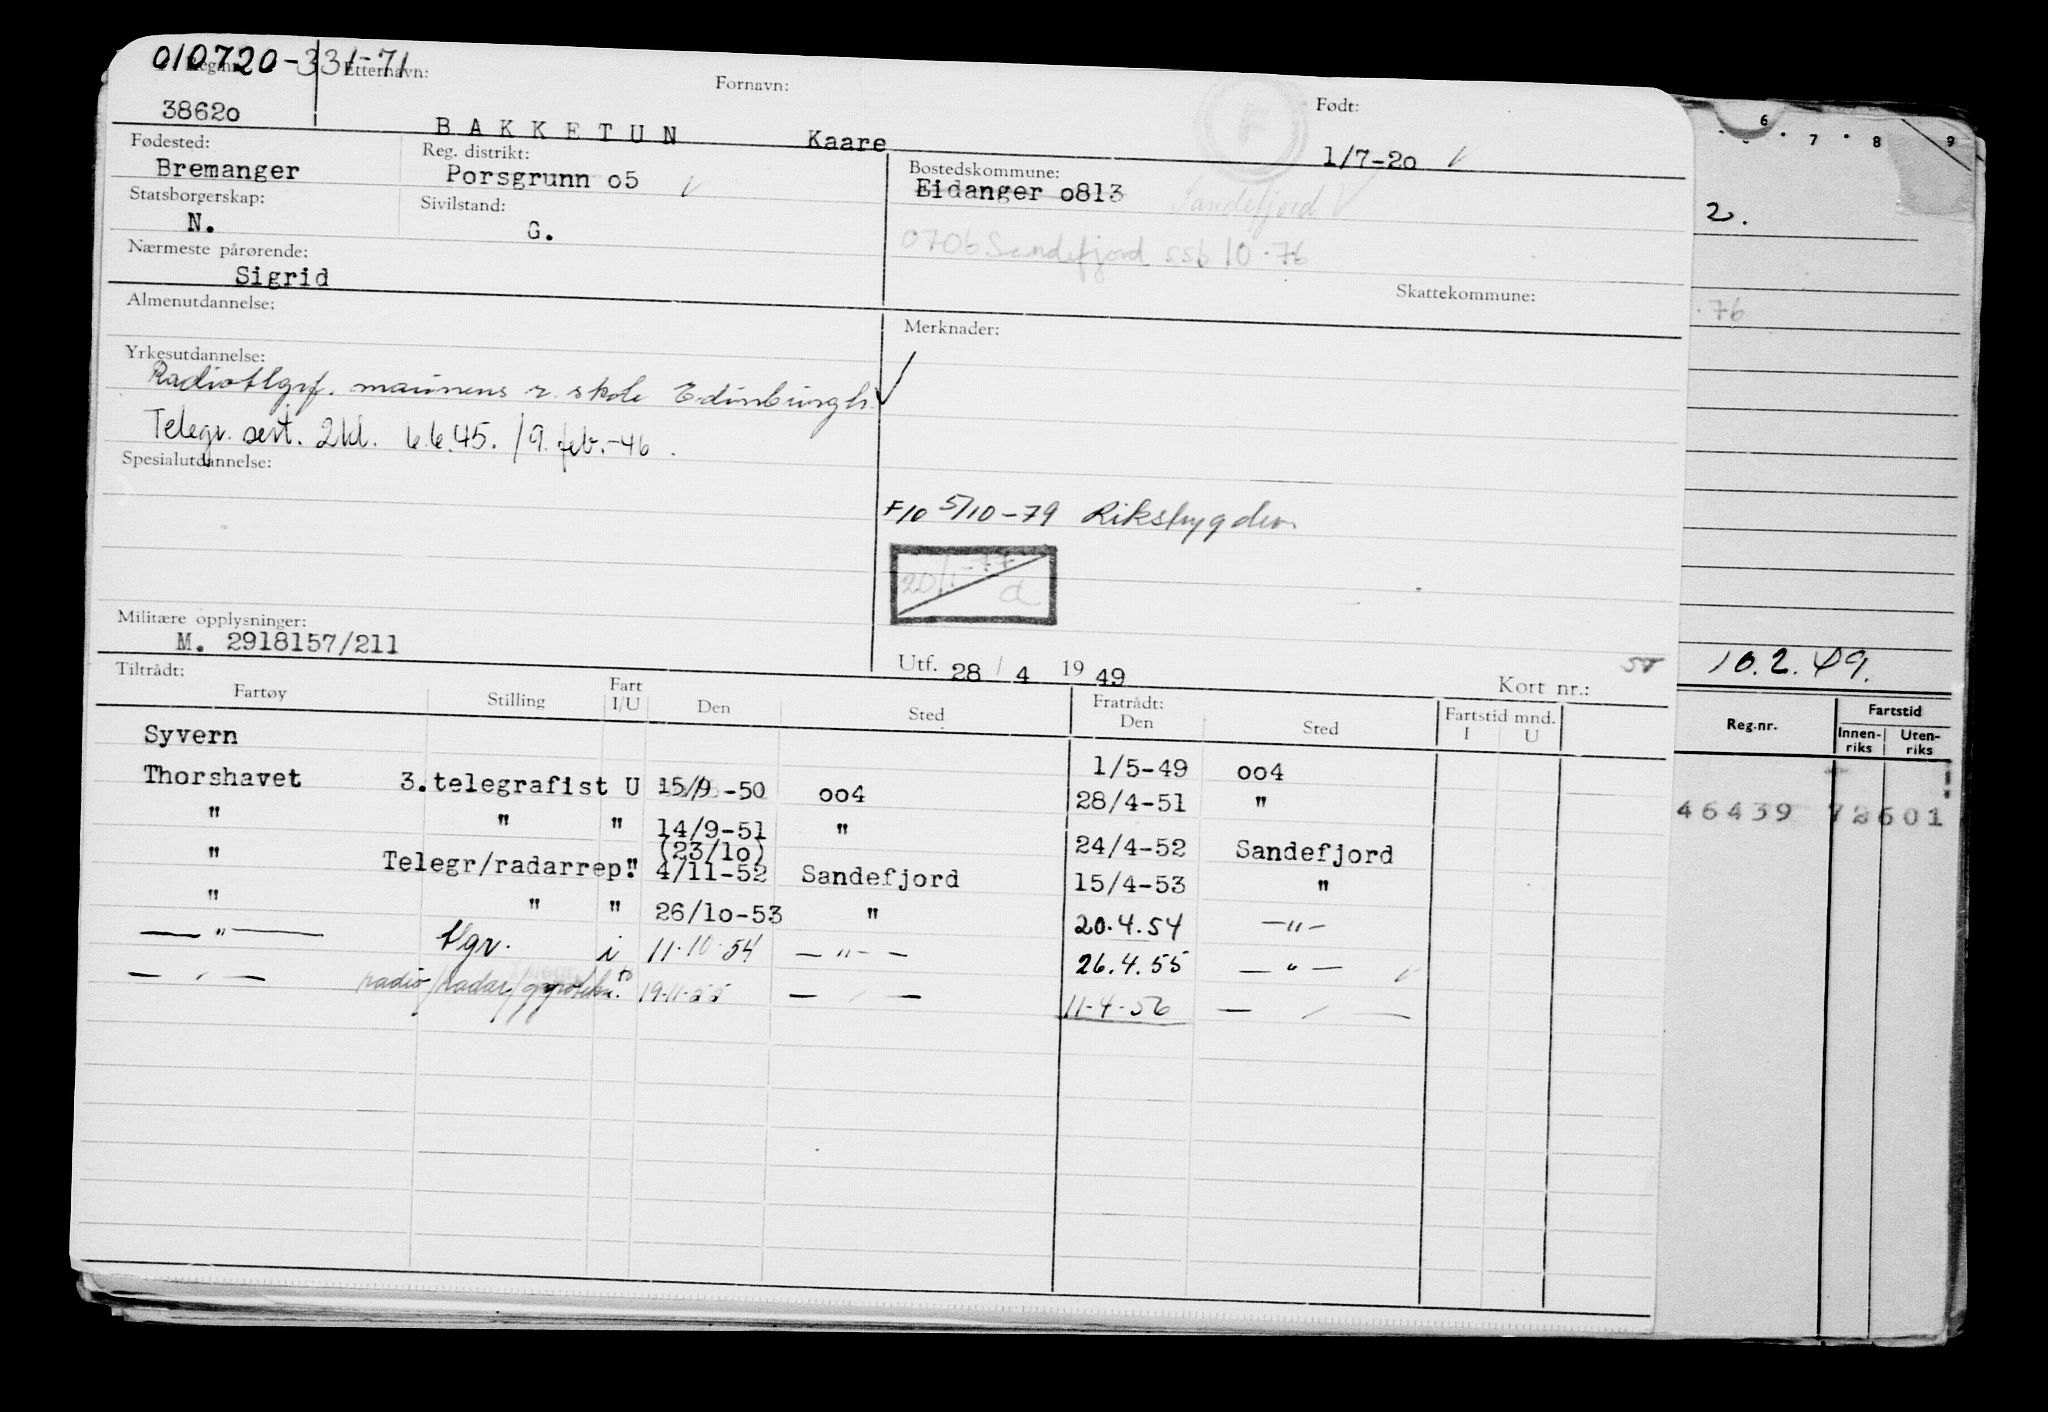 010720-331-71
Reg.nr. Etternavn: Fornavn: Født:
38620 BAKKETUN Kaare 1/7-20
Fødested: Reg. distrikt: Bostedskommune:
Bremanger Porsgrunn o5 Eidanger o813 Sandefjord
Statsborgerskap: Sivilstand:
N. G. 0706 Sandefjord ssb 10.76
Nærmeste pårørende:
Sigrid Skattekommune:
Almenutdannelse: Merknader:
Yrkesutdannelse:
Radiotlgrf. marinens r. skole Edinburgh
Telegr. sert. 2kl. 6.6.45. /9. feb.-46.
Spesialutdannelse:
F10 5/10-79 Riksbygden
20/1-77 a
Militære opplysninger:
M. 2918157/211
Utf. 28 / 4 19 49 Kort nr.:
Tiltrådt: Fratrådt:
Fartøy Stilling Fart I/U Den Sted Den Sted Fartstid mnd. I U
Syvern 1/5-49 oo4
Thorshavet 3.telegrafist U 15/9-50 oo4 28/4-51 "
" " " 14/9-51 " 24/4-52 Sandefjord
(23/1o)
" Telegr/radarrep." 4/11-52 Sandefjord 15/4-53 "
" " " 26/1o-53 " 20.4.54 —"—
—"— tlgr. i 11.10.54 —"— 26.4.55 —"—
—"— radio/radar/ 19-11-55 —"— 11-4-56 —"—
6 7 8 9
2.
.76
10.2.49.
Reg.nr. Fartstid
Innenriks Utenriks
46439 72601